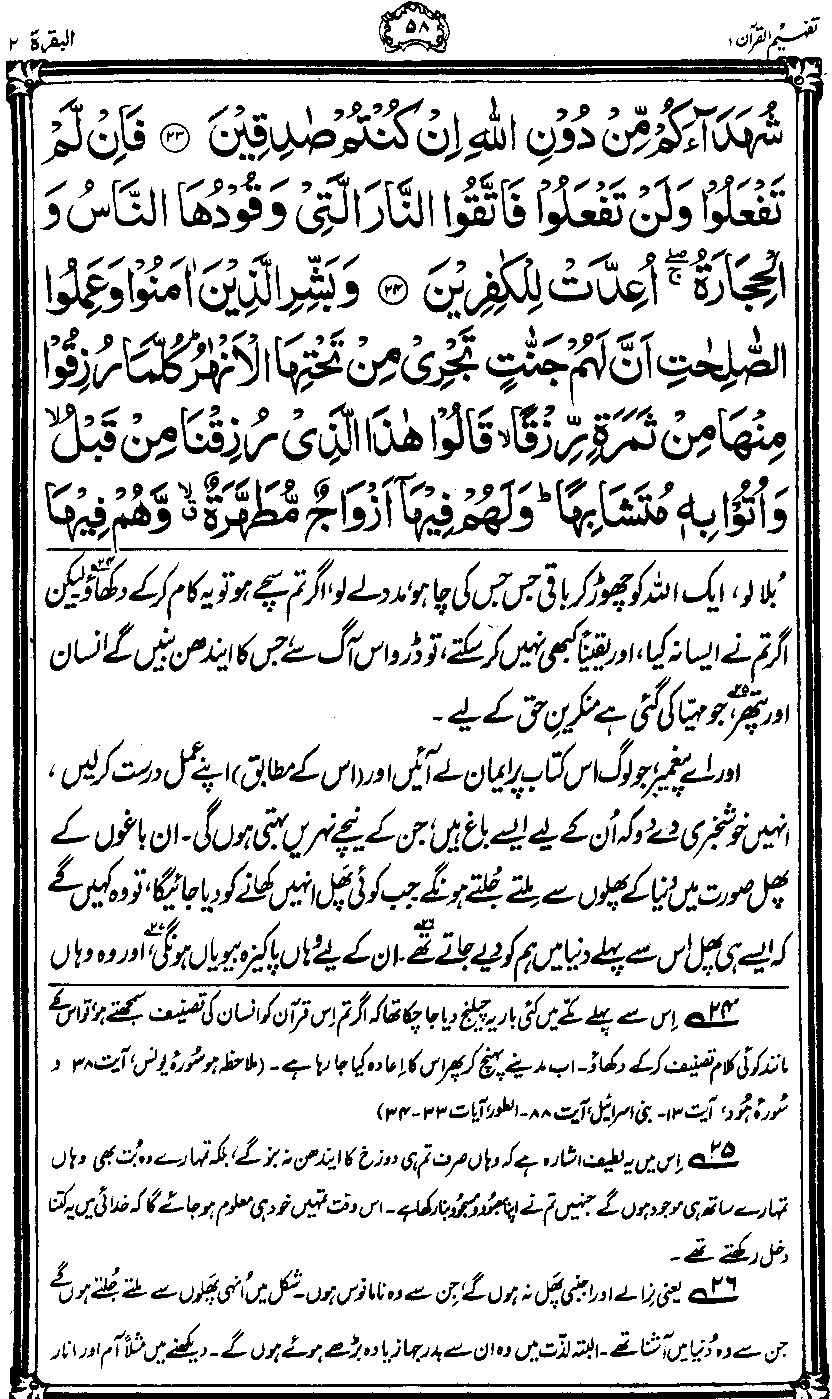 تفہیم القرآن ۱
۵۸
البقرۃ ۲
شُهَدَآءَكُمْ مِّنْ دُوْنِ اللّٰهِ اِنْ كُنْتُمْ صٰدِقِيْنَ ﴿۲۳﴾ فَاِنْ لَّمْ
تَفْعَلُوْا وَلَنْ تَفْعَلُوْا فَاتَّقُوا النَّارَ الَّتِيْ وَقُوْدُهَا النَّاسُ وَ
الْحِجَارَةُ ۖۚ اُعِدَّتْ لِلْكٰفِرِيْنَ ﴿۲۴﴾ وَبَشِّرِ الَّذِيْنَ اٰمَنُوْا وَعَمِلُوا
الصّٰلِحٰتِ اَنَّ لَهُمْ جَنّٰتٍ تَجْرِيْ مِنْ تَحْتِهَا الْاَنْهٰرُ ؕ كُلَّمَا رُزِقُوْا
مِنْهَا مِنْ ثَمَرَةٍ رِّزْقًا ۙ قَالُوْا هٰذَا الَّذِيْ رُزِقْنَا مِنْ قَبْلُ ۙ
وَاُتُوْا بِهٖ مُتَشَابِهًا ؕ وَلَهُمْ فِيْهَآ اَزْوَاجٌ مُّطَهَّرَةٌ ۙ وَّهُمْ فِيْهَا
بُلا لو، ایک اللہ کو چھوڑ کر باقی جس جس کی چاہو مدد لے لو، اگر تم سچے ہو تو یہ کام کرکے دکھاؤ۲۴ لیکن
اگر تم نے ایسا نہ کیا، اور یقیناً کبھی نہیں کر سکتے، تو ڈرو اس آگ سے، جس کا ایندھن بنیں گے انسان
اور پتھر۲۵، جو مہیّا کی گئی ہے منکرینِ حق کے لیے۔
اور اے پیغمبر، جو لوگ اس کتاب پر ایمان لے آئیں اور (اس کے مطابق) اپنے عمل درست کرلیں،
انہیں خوشخبری دے دو کہ اُن کے لیے ایسے باغ ہیں، جن کے نیچے نہریں بہتی ہوں گی۔ ان باغوں کے
پھل صورت میں دنیا کے پھلوں سے ملتے جُلتے ہونگے جب کوئی پَھل انہیں کھانے کو دیا جائیگا، تو وہ کہیں گے
کہ ایسے ہی پھل اس سے پہلے دنیا میں ہم کو دیے جاتے تھے۲۶۔ ان کے لیے وہاں پاکیزہ بیویاں ہونگی۲۷، اور وہ وہاں
۲۴ اِس سے پہلے مکّے میں کئی بار یہ چیلنج دیا جا چکا تھا کہ اگر تم اِس قرآن کو انسان کی تصنیف سمجھتے ہو، تو اس کے
مانند کوئی کلام تصنیف کرکے دکھاؤ۔ اب مدینے پہنچ کر پھر اس کا اِعادہ کیا جا رہا ہے۔ (ملاحظہ ہو سُورۂ یونس، آیت ۳۸ و
سُورۂ ہُود، آیت ۱۳۔ بنی اسرائیل، آیت ۸۸۔ الطور، آیات ۳۳-۳۴)
۲۵ اِس میں یہ لطیف اشارہ ہے کہ وہاں صرف تم ہی دوزخ کا ایندھن نہ بنو گے، بلکہ تمہارے وہ بُت بھی وہاں
تمہارے ساتھ ہی موجود ہوں گے جنہیں تم نے اپنا معبُود و مسجُود بنا رکھا ہے۔ اس وقت تمہیں خود ہی معلوم ہو جائے گا کہ خدائی میں یہ کتنا
دخل رکھتے تھے۔
۲۶ یعنی نرالے اور اجنبی پَھل نہ ہوں گے، جن سے وہ نامانوس ہوں۔ شکل میں اُنہی پَھلوں سے ملتے جُلتے ہوں گے
جن سے وہ دُنیا میں آشنا تھے۔ البتہ لذّت میں وہ ان سے بدرجہا زیادہ بڑھے ہوئے ہوں گے۔ دیکھنے میں مثلاً آم اور انار